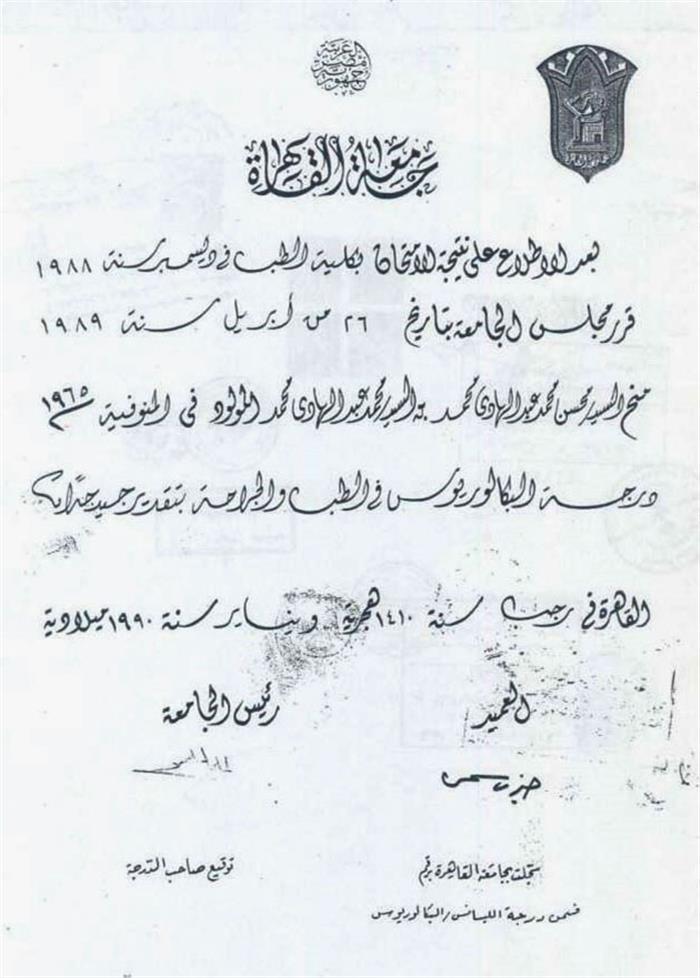 جمهورية مصر العربية
جامعة القاهرة
بعد الاطلاع على نتيجة الامتحان بكلية الطب في ديسمبر سنة ١٩٨٨
قرر مجلس الجامعة بتاريخ ٢٦ من أبريل سنة ١٩٨٩
منح السيد/محسن محمد عبد الهادى محمد بن السيد/محمد عبد الهادى محمد المولود فى المنوفية ١٩٦٥
درجة البكالوريوس في الطب والجراحة بتقدير جيد جدًا
القاهرة في رجب سنة ١٤١٠ هجرية وينــاير سنة ١٩٩٠ ميلادية
العميد
رئيس الجامعة
سجلت بجامعة القاهرة برقم
توقيع صاحب الدرجة
ضمن درجة الليسانس/البكالوريوس